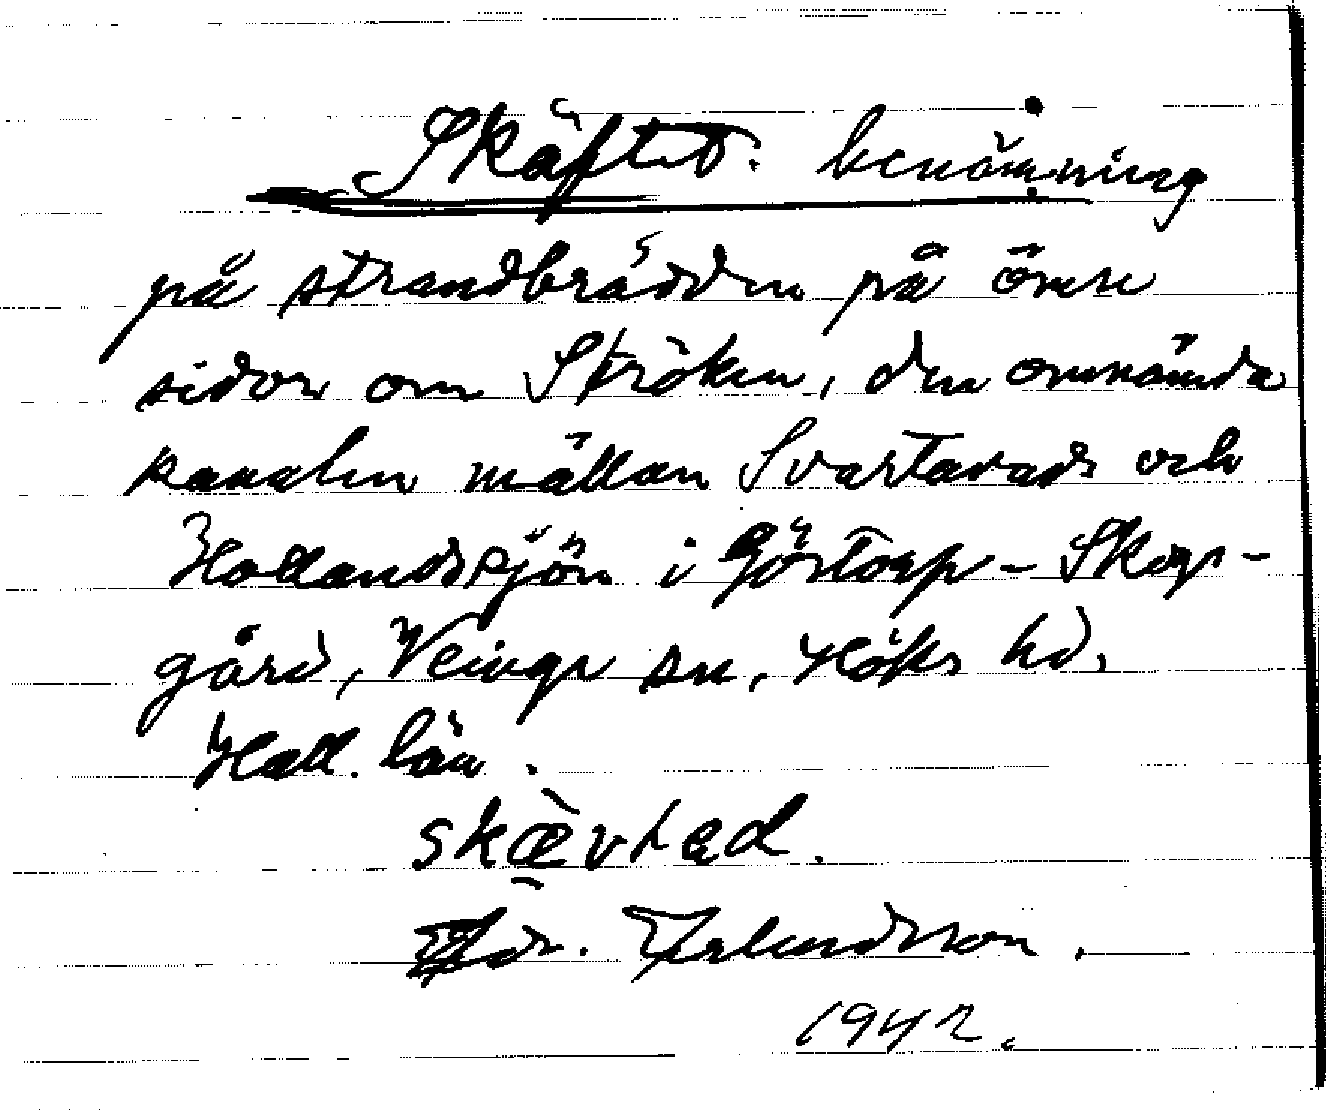 Skäftet: benämning
på strandbrädden på ömse
sidor om Ströken, den omnämda
kanalen mällan Svartavads och
Hollandssjön i Göstorp - Skogs-
gård, Veinge sn, Höks hd,
Hall. län.
skævtəd.
Erlandsson.
1942.